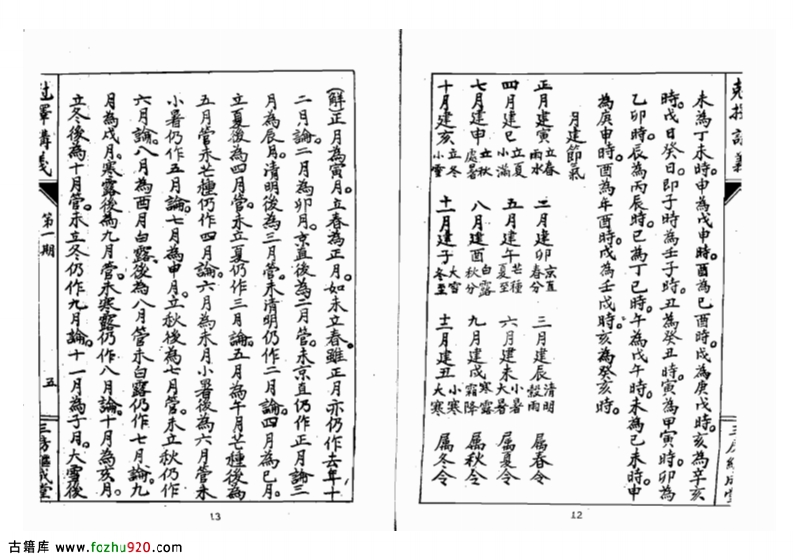 未為丁未時。申為戊申時。酉為己酉時。戌為庚戌時。亥為辛亥
時。戊日癸日。即子時為壬子時。丑為癸丑時。寅為甲寅時。卯為
乙卯時。辰為丙辰時。巳為丁巳時。午為戊午時。未為己未時。申
為庚申時。酉為年酉時。戌為壬戌時。亥為癸亥時。
月建節氣
正月建寅 立春 雨水 二月建卯 京直 春分 三月建辰 清明 穀雨 属春令
四月建巳 立夏 小滿 五月建午 芒種 夏至 六月建未 小暑 大暑 属夏令
七月建申 立秋 處暑 八月建酉 白露 秋分 九月建戌 寒露 霜降 属秋令
十月建亥 立冬 小雪 十一月建子 大雪 冬至 十二月建丑 小寒 大寒 属冬令
12
(解)正月為寅月。立春為正月。如未立春。雖正月亦仍作去年十
二月論。二月為卯月。京直後為二月管。未京直仍作正月論。三
月為辰月。清明後為三月管。未清明仍作二月論。四月為巳月。
立夏後為四月管。未立夏仍作三月論。五月為午月。芒種後為
五月管。未芒種仍作四月論。六月為未月。小暑後為六月管。未
小暑仍作五月論。七月為申月。立秋後為七月管。未立秋仍作
六月論。八月為酉月。白露後為八月管。未白露仍作七月論。九
月為戌月。寒露後為九月管。未寒露仍作八月論。十月為亥月。
立冬後為十月管。未立冬仍作九月論。十一月為子月。大雪後
講義
第一期
五
13
古籍库 www.fozhu920.com